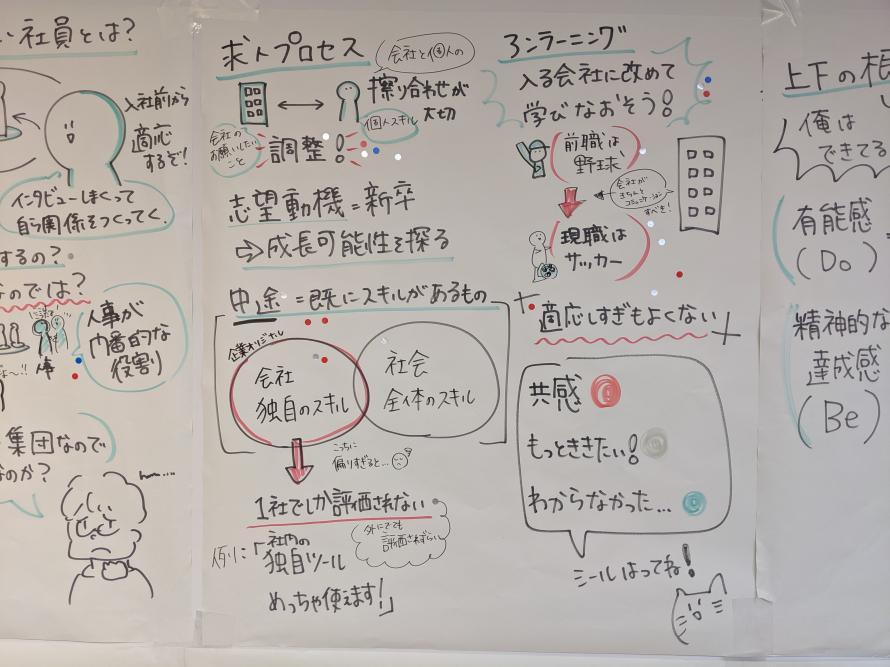 い社員とは?
入社前から
適応
するぞ!
インタビューしまくって
自ら関係をつくってく。
するの?
なのでは?
人事
人事が
門番的な
役割
集団なので
なのか?
求人プロセス
会社と個人の
擦り合わせが
大切
会社の
お願いしたい
こと
調整!
個人スキル
志望動機=新卒
⇨成長可能性を探る
中途=既にスキルがあるもの
企業オリジナル
会社
独自のスキル
社会
全体のスキル
こっちに
偏りすぎると…
1社でしか評価されない
外にでても
評価されずらい
例に「社内の
独自ツール
めっちゃ使えます!」
アンラーニング
入る会社に改めて
学びなおそう!
前職は
野球
会社が
きちんと
コミュニケーション
すべき!
現職は
サッカー
適応しすぎもよくない
共感
もっとききたい!
わからなかった…
シールはってね!
上下の根
俺は
できてる
有能感
(Do)
精神的な
達成感
(Be)